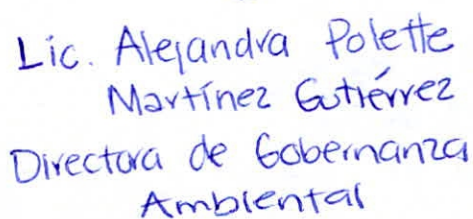 Lic. Alejandra Polette
Martínez Gutiérrez
Directora de Gobernanza
Ambiental